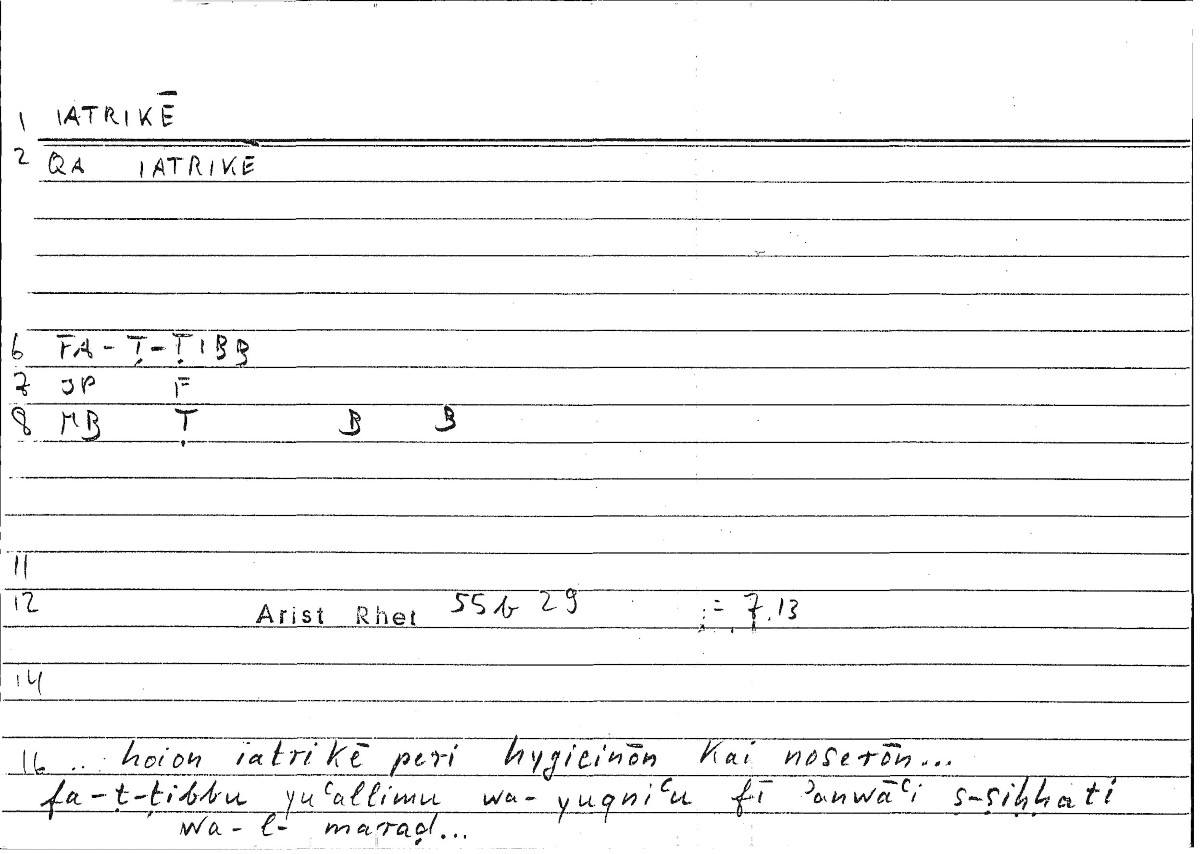 1 IATRIKĒ
2 QA IATRIKE
6 FA-Ṭ-ṬIBB
7 JP F
8 MB Ṭ B B
11
12 Arist Rhet 55b 29 := 7.13
14
16 .. hoion iatrikē peri hygieinōn kai noserōn...
fa-ṭ-ṭibbu yuʿallimu wa-yuqniʿu fī ʾanwāʿi ṣ-ṣiḥḥati
wa-l-maraḍ...